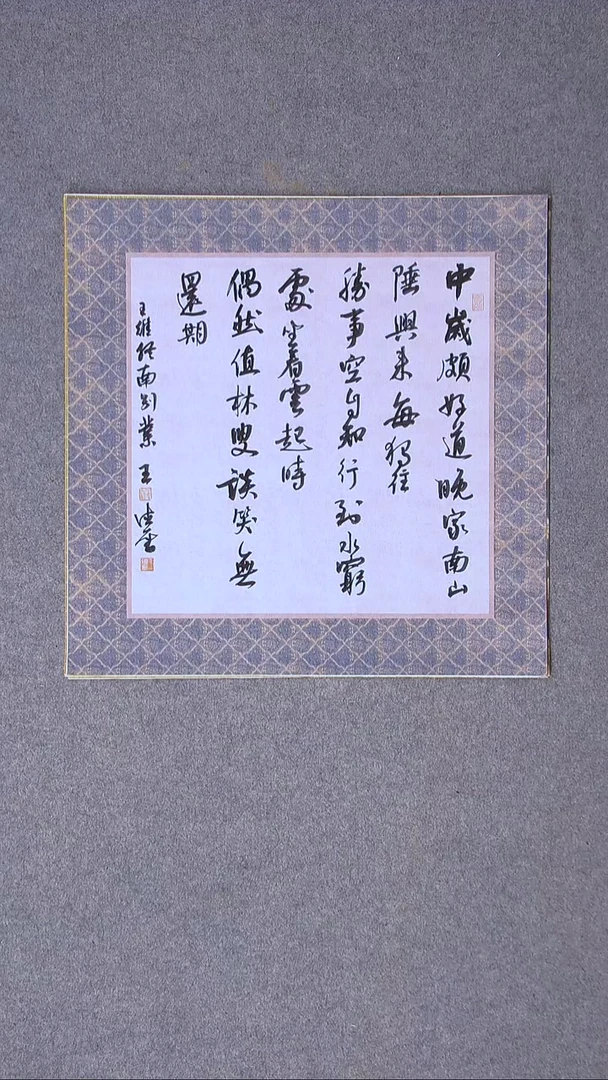 中歲頗好道晚家南山
陲興來每獨往
勝事空自知行到水窮
處坐看雲起時
偶然值林叟談笑無
還期
王維終南別業 王